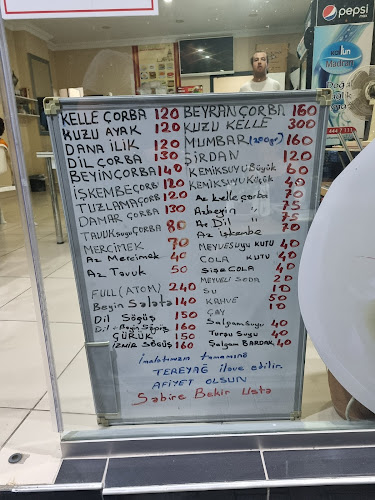 pepsi
KELLE ÇORBA 120
KUZU AYAK 120
DANA İLİK 120
DİL ÇORBA 130
BEYİNÇORBA 140
İŞKEMBEÇORB 120
TUZLAMAÇORB 120
DAMAR ÇORBA 130
TAVUKsuyuÇORBA 80
MERCİMEK 70
Az Mercimek 40
Az Tavuk 50
FULL (ATOM) 240
Beyin Salata 140
Dil Söğüş 150
Dil+Beyin Söğüş 160
ÇÜRÜK 150
İZMİR SÖĞÜŞ 160
BEYRANÇORBA 160
KUZU KELLE 300
MUMBAR (200gr) 160
ŞIRDAN 120
KEMİKSUYU Büyük 60
KEMİKSUYU Küçük 40
Az Kelle çorba 70
Azbeyin " 75
Az Dil " 75
Az İşkembe 70
MEYVESUYU KUTU 40
COLA KUTU 40
ŞişeCOLA 40
MEYVELİ SODA 20
SU 10
KAHVE 50
ÇAY 10
Şalgam Suyu 40
Turşu Suyu 40
Şalgam BARDAK 40
İmalatımızın tamamına
TEREYAĞ ilave edilir.
AFİYET OLSUN
Sabire Bekir Usta